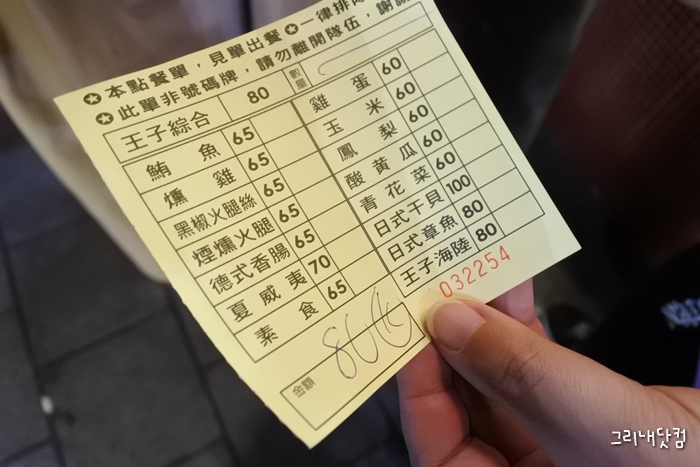 ✪本點餐單，見單出餐✪一律排隊
✪此單非號碼牌，請勿離開隊伍，謝謝
王子綜合 80 數量
鮪魚 65
燻雞 65
黑椒火腿絲 65
煙燻火腿 65
德式香腸 65
夏威夷 70
素食 65
雞蛋 60
玉米 60
鳳梨 60
酸黃瓜 60
青花菜 60
日式干貝 100
日式章魚 80
王子海陸 80
金額 80
032254
그리내닷컴